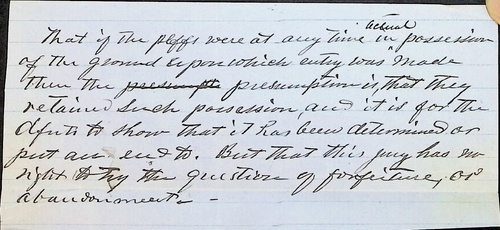 That if the plffs were at any time in actual possession
of the ground upon which entry was made
then the presumpt presumption is, that they
retained such possession, and it is for the
dfnts to show that it has been determined or
put an end to. But that this jury has no
right to try the question of forfeiture, or
abandonment. -